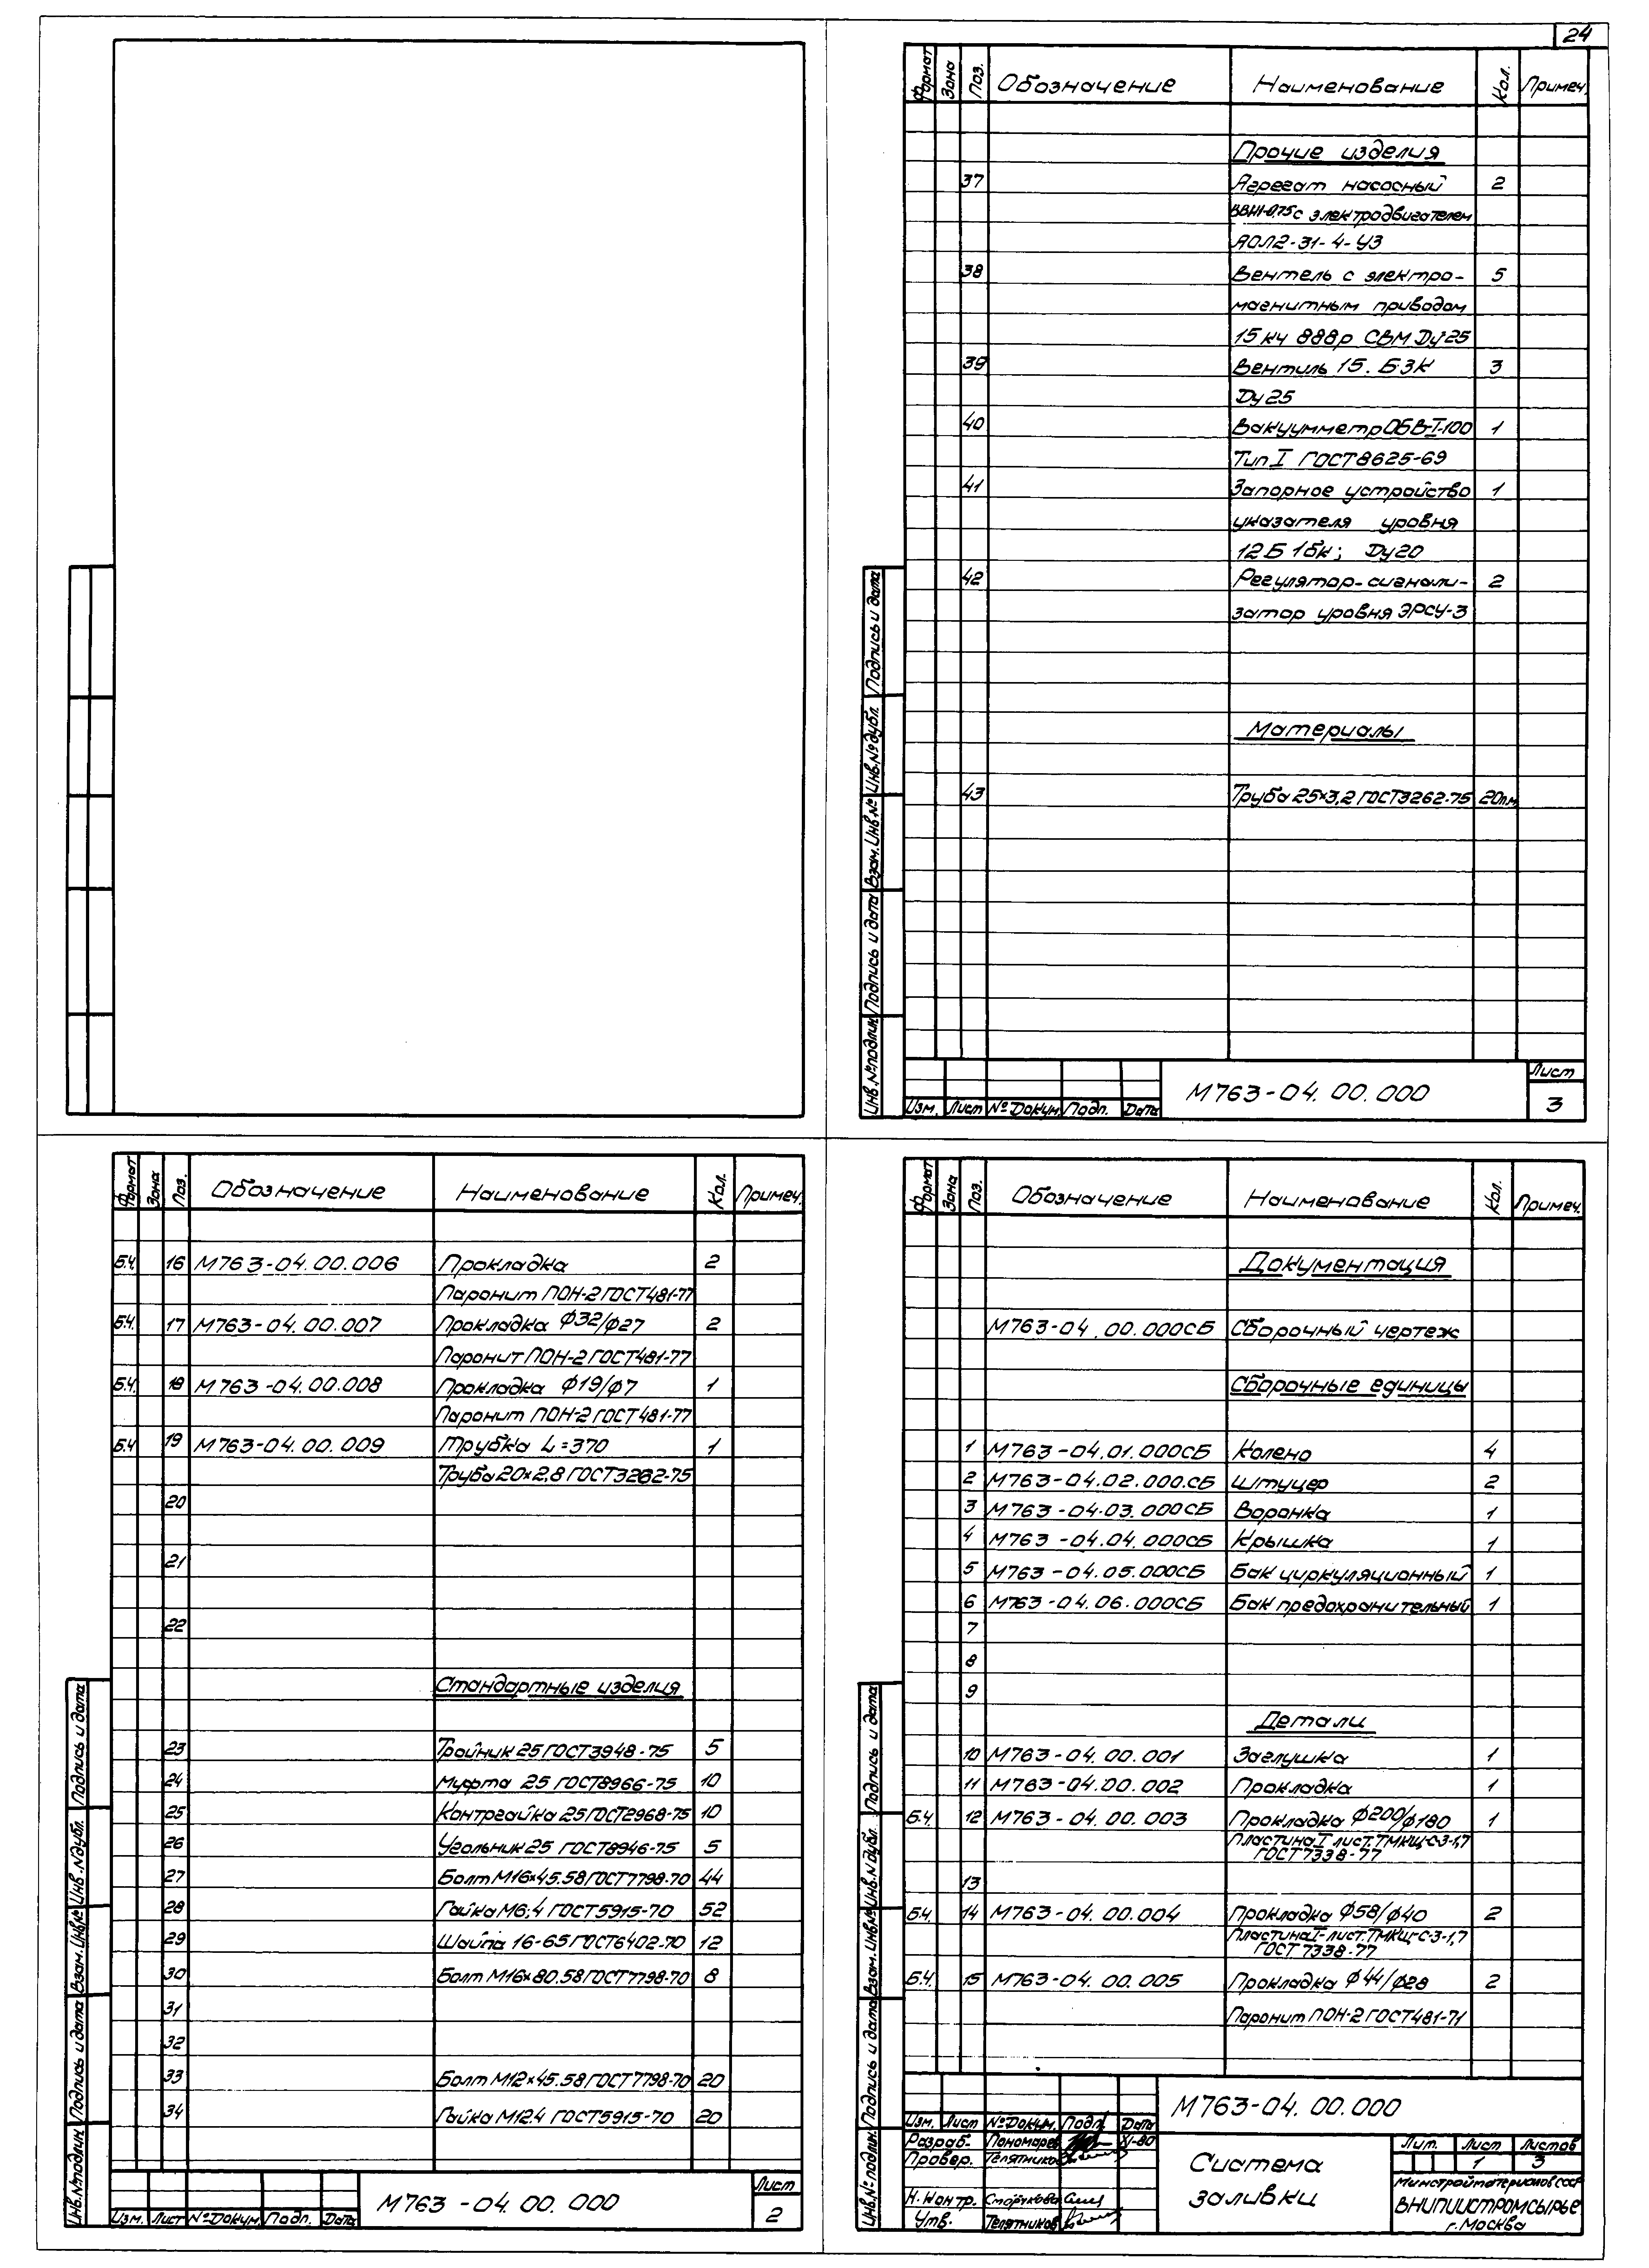 24
Формат Зона Поз. Обозначение Наименование Кол. Примеч.
Прочие изделия
37 Агрегат насосный 2
ВВН1-0,75 с электродвигателем
АОЛ2-31-4-У3
38 Вентель с электро- 5
магнитным приводом
15 кч 888р СВМ Ду25
39 Вентиль 15. Б3К 3
Ду 25
40 Вакуумметр ОБВ-I-100 1
Тип I ГОСТ 8625-69
41 Запорное устройство 1
указателя уровня
12Б 1бк; Ду20
42 Регулятор-сигнали- 2
затор уровня ЭРСУ-3
Материалы
43 Труба 25×3,2 ГОСТ3262-75 20п.м
Инв.№подлин. Подпись и дата Взам.Инв.№ Инв.№дубл. Подпись и дата
Изм. Лист №Докум. Подп. Дата
М763-04.00.000
Лист
3
Формат Зона Поз. Обозначение Наименование Кол. Примеч.
Б.Ч. 16 М763-04.00.006 Прокладка 2
Паронит ПОН-2 ГОСТ481-77
Б.Ч. 17 М763-04.00.007 Прокладка ф32/ф27 2
Паронит ПОН-2 ГОСТ481-77
Б.Ч. 18 М763-04.00.008 Прокладка ф19/ф7 1
Паронит ПОН-2 ГОСТ481-77
Б.Ч 19 М763-04.00.009 Трубка L=370 1
Труба 20×2,8 ГОСТ3262-75
20
21
22
Стандартные изделия
23 Тройник 25 ГОСТ3948-75 5
24 Муфта 25 ГОСТ8966-75 10
25 Контргайка 25 ГОСТ2968-75 10
26 Угольник 25 ГОСТ8946-75 5
27 Болт М16×45.58 ГОСТ7798-70 44
28 Гайка М6;4 ГОСТ5915-70 52
29 Шайба 16-65 ГОСТ6402-70 12
30 Болт М16×80.58 ГОСТ7798-70 8
31
32
33 Болт М12×45.58 ГОСТ7798-70 20
34 Гайка М12.4 ГОСТ5915-70 20
Инв.№подлин. Подпись и дата Взам.Инв.№ Инв.№дубл. Подпись и дата
Изм. Лист №Докум. Подп. Дата
М763-04.00.000
Лист
2
Формат Зона Поз. Обозначение Наименование Кол. Примеч.
Документация
М763-04.00.000СБ Сборочный чертеж
Сборочные единицы
1 М763-04.01.000СБ Колено 4
2 М763-04.02.000.СБ Штуцер 2
3 М763-04.03.000СБ Воронка 1
4 М763-04.04.000СБ Крышка 1
5 М763-04.05.000СБ Бак циркуляционный 1
6 М763-04.06.000СБ Бак предохранительный 1
7
8
9
Детали
10 М763-04.00.001 Заглушка 1
11 М763-04.00.002 Прокладка 1
Б.Ч. 12 М763-04.00.003 Прокладка ф200/ф180 1
Пластина I лист.ТМКЩ-С-3-1,7
ГОСТ 7338-77
13
Б.Ч. 14 М763-04.00.004 Прокладка ф58/ф40 2
Пластина I-лист.ТМКЩ-С-3-1,7
ГОСТ 7338-77
Б.Ч. 15 М763-04.00.005 Прокладка ф44/ф28 2
Паронит ПОН-2 ГОСТ481-71
Инв.№подлин. Подпись и дата Взам.Инв.№ Инв.№дубл. Подпись и дата
Изм. Лист №Докум. Подп. Дата
М763-04.00.000
Разраб. Пономарев XI-80
Провер. Телятников
Н.Контр.
Утв. Телятников
Система
заливки
Лит. Лист Листов
1 3
Минстройматериалов СССР
ВНИПИИСТРОМСЫРЬЕ
г.Москва